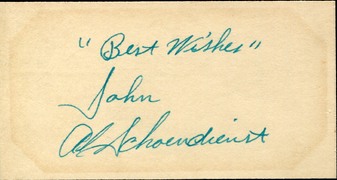 "Best Wishes"
John
Al Schoendienst